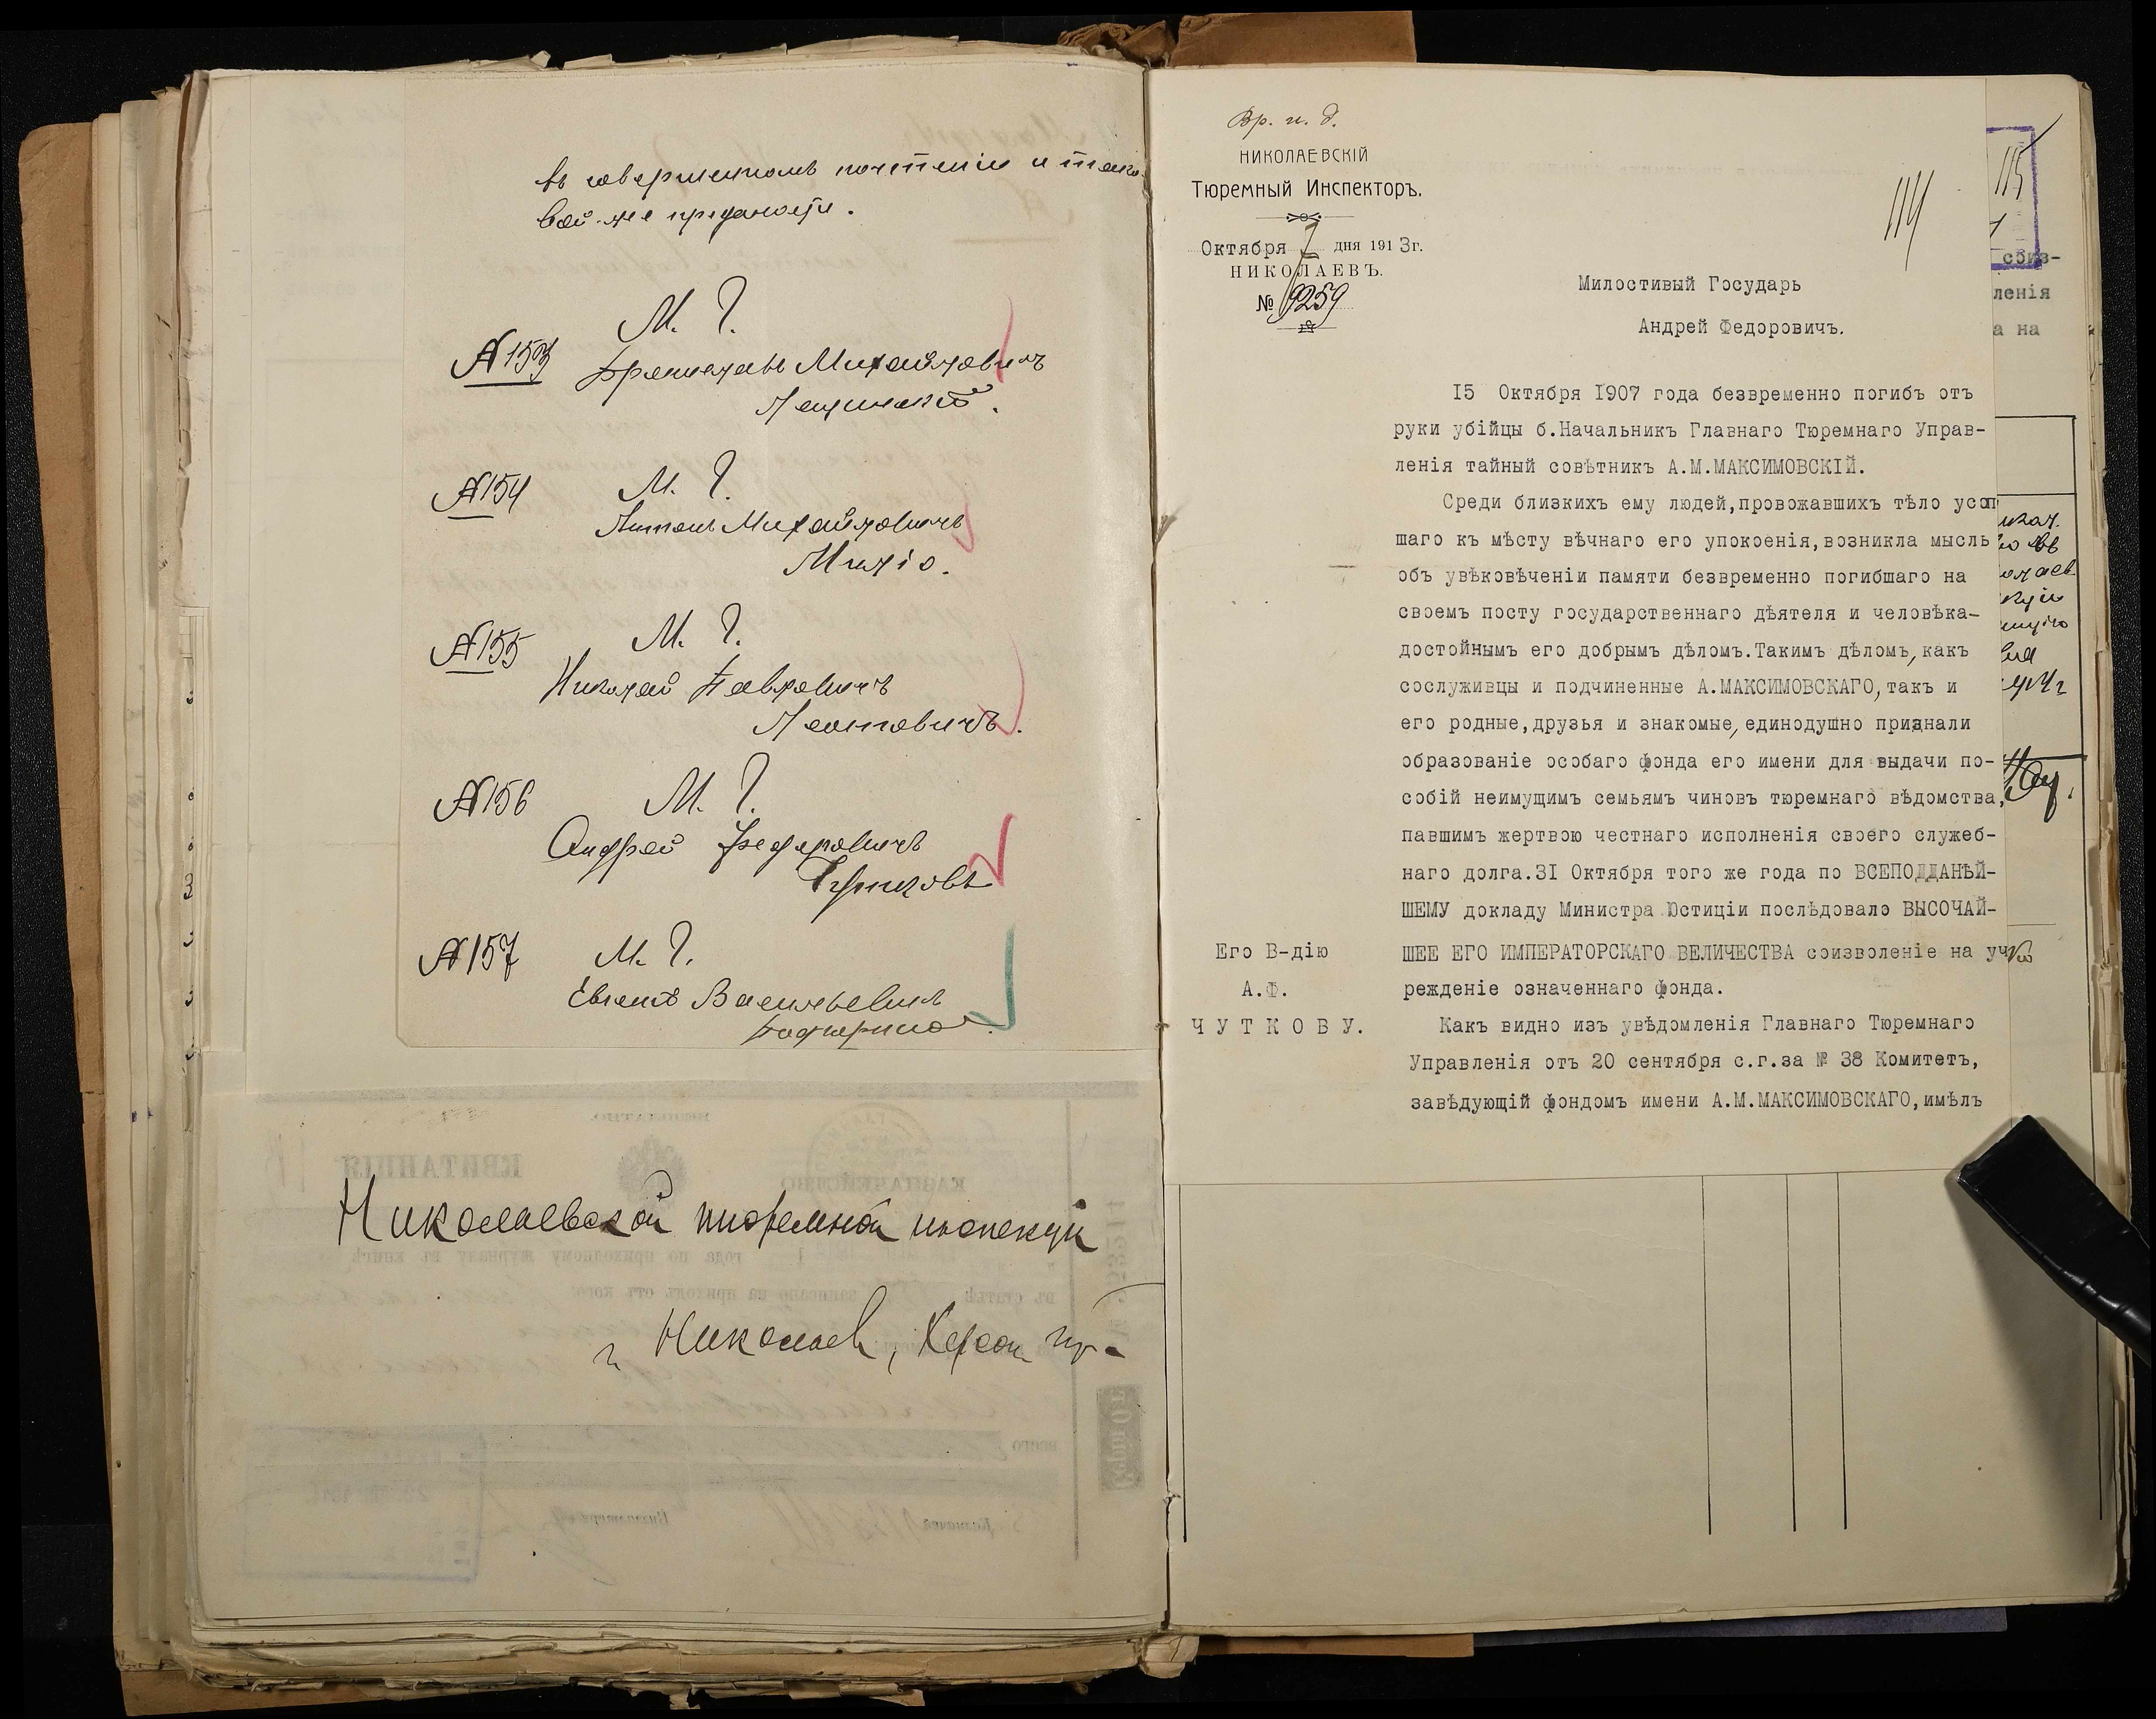 въ совершенномъ почтеніи и тако-
вой-же преданости.
М. Г.
№153
Брониславъ Михайловичъ
Лещинскій.
№154
М. Г.
Антонъ Михайловичъ
Милio.
№155
М. Г.
Николай Павловичъ
Леонтовичъ.
№156
М. Г.
Андрей Федоровичъ
Чутковъ
№157
М. Г.
Евгеній Васильевичъ
Николаевской тюремной инспекціи
г. Николаев, Херсон. губ.
Вр. и. д.
НИКОЛАЕВСКІЙ
Тюремный Инспекторъ.
Октября 7 дня 1913г.
НИКОЛАЕВЪ.
№ 9259
114
115
Милостивый Государь
Андрей Федоровичъ.
15 Октября 1907 года безвременно погибъ отъ
руки убійцы б.Начальникъ Главнаго Тюремнаго Управ-
ленія тайный совѣтникъ А.М.МАКСИМОВСКІЙ.
Среди близкихъ ему людей,провожавшихъ тѣло усоп
шаго къ мѣсту вѣчнаго его упокоенія,возникла мысль
объ увѣковѣченіи памяти безвременно погибшаго на
своемъ посту государственнаго дѣятеля и человѣка-
достойнымъ его добрымъ дѣломъ.Такимъ дѣломъ,какъ
сослуживцы и подчиненные А.МАКСИМОВСКАГО,такъ и
его родные,друзья и знакомые,единодушно признали
образованіе особаго фонда его имени для выдачи по-
собій неимущимъ семьямъ чиновъ тюремнаго вѣдомства,
павшимъ жертвою честнаго исполненія своего служеб-
наго долга.31 Октября того же года по ВСЕПОДДАНѢЙ-
ШЕМУ докладу Министра Юстиціи послѣдовало ВЫСОЧАЙ-
ШЕЕ ЕГО ИМПЕРАТОРСКАГО ВЕЛИЧЕСТВА соизволеніе на уч
режденіе означеннаго фонда.
Какъ видно изъ увѣдомленія Главнаго Тюремнаго
Управленія отъ 20 сентября с.г.за № 38 Комитетъ,
завѣдующій фондомъ имени А.М.МАКСИМОВСКАГО,имѣлъ
Его В-дію
А.Ф.
ЧУТКОВУ.
сбиз-
ленія
а на